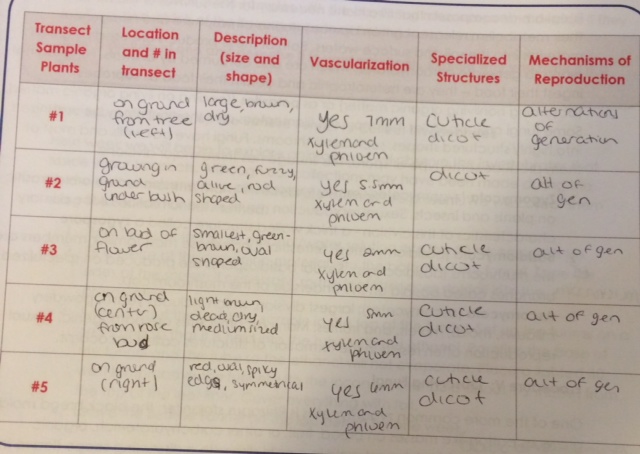 Transect Sample Plants
Location and # in transect
Description (size and shape)
Vascularization
Specialized Structures
Mechanisms of Reproduction
#1
on ground
from tree
(left)
large, brown,
dry
yes 7mm
xylem and
phloem
cuticle
dicot
alternations
of
generation
#2
growing in
ground
under bush
green, fuzzy,
alive, rod
shaped
yes 55mm
xylem and
phloem
dicot
alt of
gen
#3
on bud of
flower
smallest, green-
brown, oval
shaped
yes 2mm
xylem and
phloem
cuticle
dicot
alt of gen
#4
on ground
(center)
from rose
bud
light brown,
dead, dry,
medium sized
yes 5mm
xylem and
phloem
cuticle
dicot
alt of gen
#5
on ground
(right)
red, oval, spiky
edges, symmetrical
yes 6mm
xylem and
phloem
cuticle
dicot
alt of gen